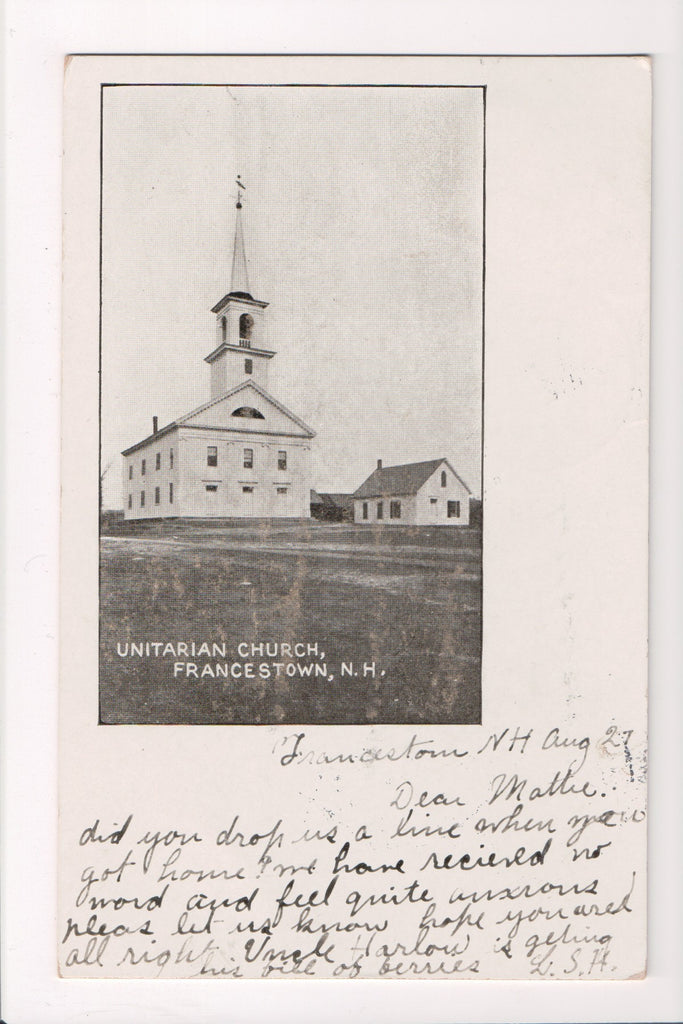 UNITARIAN CHURCH,
FRANCESTOWN, N.H.
Francestown NH Aug 27
Dear Mattie.
did you drop us a line when you
got home? we have recieved no
word and feel quite anxious
pleas let us know hope you ared
all right. Uncle Harlow is geting
his of berries L. S. H.